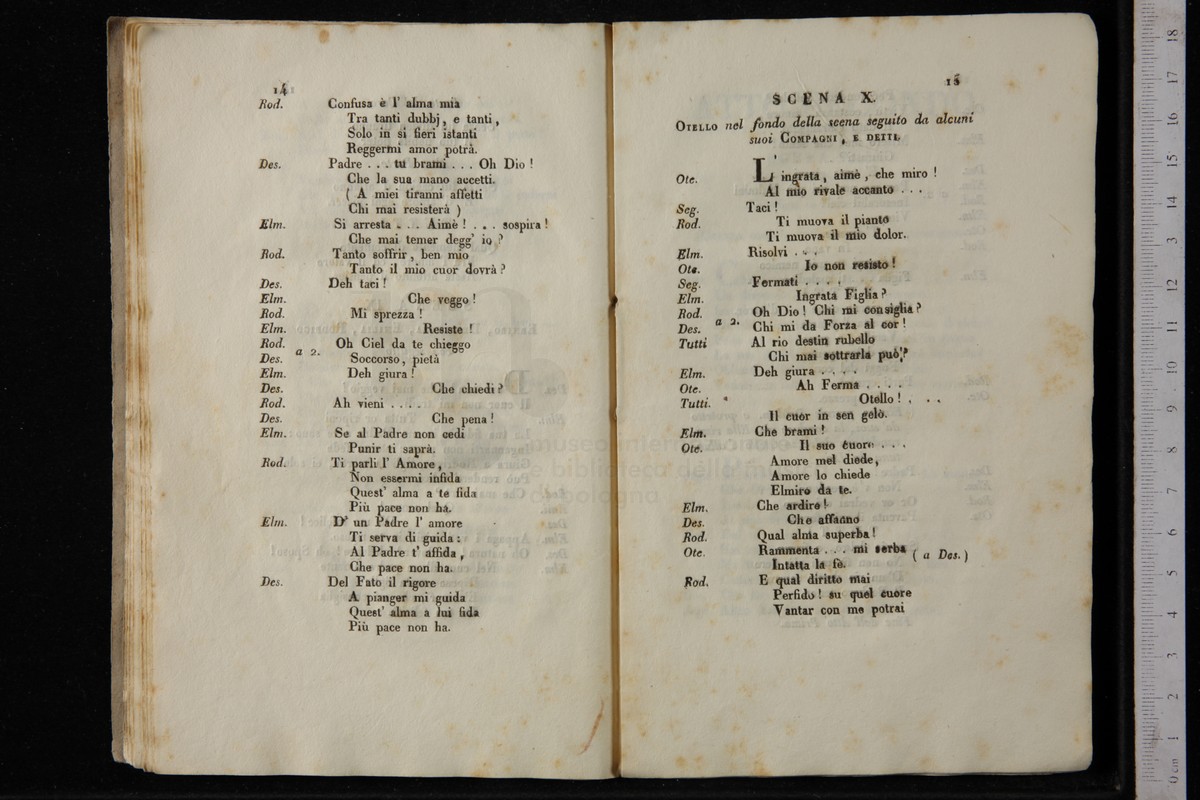 14
Rod. Confusa è l' alma mia
Tra tanti dubbj, e tanti,
Solo in sì fieri istanti
Reggermi amor potrà.
Des. Padre . . . tu brami . . . Oh Dio !
Che la sua mano accetti.
( A miei tiranni affetti
Chi mai resisterà )
Elm. Si arresta . . . Aimè ! . . . sospira !
Che mai temer degg' io ?
Rod. Tanto soffrir, ben mio
Tanto il mio cuor dovrà ?
Des. Deh taci !
Elm. Che veggo !
Rod. Mi sprezza !
Elm. Resiste !
Rod. Oh Ciel da te chieggo
Des. a 2. Soccorso, pietà
Elm. Deh giura !
Des. Che chiedi ?
Rod. Ah vieni . . . .
Des. Che pena !
Elm. Se al Padre non cedi
Punir ti saprà.
Rod. Ti parli l' Amore,
Non essermi infida
Quest' alma a te fida
Più pace non ha.
Elm. D' un Padre l' amore
Ti serva di guida :
Al Padre t' affida,
Che pace non ha.
Des. Del Fato il rigore
A pianger mi guida
Quest' alma a lui fida
Più pace non ha.
15
SCENA X.
OTELLO nel fondo della scena seguito da alcuni
suoi COMPAGNI, E DETTI.
Ote. L' ingrata, aimè, che miro !
Al mio rivale accanto . . .
Seg. Taci !
Rod. Ti muova il pianto
Ti muova il mio dolor.
Elm. Risolvi . . .
Ote. Io non resisto !
Seg. Fermati . . . .
Elm. Ingrata Figlia ?
Rod. Oh Dio ! Chi mi consiglia ?
Des. a 2. Chi mi da Forza al cor !
Tutti Al rio destin rubello
Chi mai sottrarla può ?
Elm. Deh giura . . . .
Ote. Ah Ferma . . . .
Tutti. Otello ! . . .
Il cuor in sen gelò.
Elm. Che brami !
Ote. Il suo cuore . . .
Amore mel diede,
Amore lo chiede
Elmiro da te.
Elm. Che ardire !
Des. Che affanno
Rod. Qual alma superba !
Ote. Rammenta . . . mi serba ( a Des. )
Intatta la fè.
Rod. E qual diritto mai
Perfido ! su quel cuore
Vantar con me potrai
museo internazionale
e biblioteca della musica
di bologna
0 cm 1 2 3 4 5 6 7 8 9 10 11 12 13 14 15 16 17 18